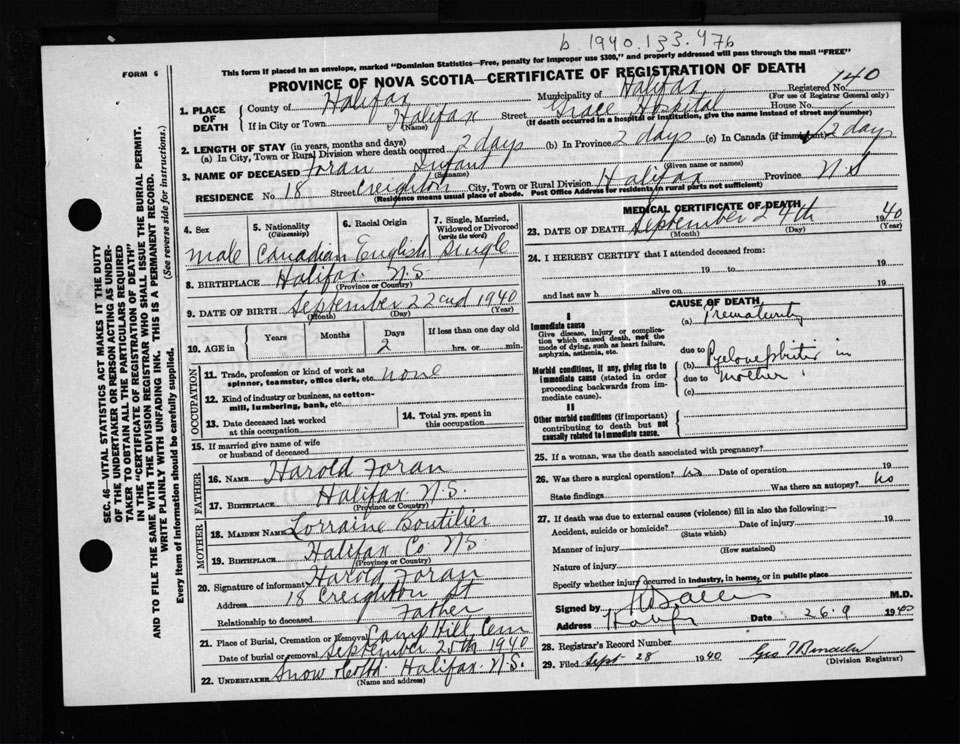 b. 1940.133.476
FORM 6
This form if placed in an envelope, marked "Dominion Statistics—Free, penalty for improper use $300," and properly addressed will pass through the mail "FREE"
PROVINCE OF NOVA SCOTIA—CERTIFICATE OF REGISTRATION OF DEATH
1. PLACE OF DEATH
County of Halifax Municipality of Halifax Registered No. 140
(For use of Registrar General only)
If in City or Town Halifax Street Grace Hospital House No.
(Name) (If death occurred in a hospital or institution, give the name instead of street and number)
2. LENGTH OF STAY (in years, months and days)
(a) In City, Town or Rural Division where death occurred 2 days (b) In Province 2 days (c) In Canada (if immigrant) 2 days
3. NAME OF DECEASED Foran Infant
(Surname) (Given name or names)
RESIDENCE No. 18 Street Creighton City, Town or Rural Division Halifax Province N.S
(Residence means usual place of abode. Post Office Address for residents in rural parts not sufficient)
4. Sex
Male
5. Nationality (Citizenship)
Canadian
6. Racial Origin
English
7. Single, Married, Widowed or Divorced (write the word)
Single
8. BIRTHPLACE Halifax N.S
(Province or Country)
9. DATE OF BIRTH September 22nd 1940
(Month) (Day) (Year)
10. AGE in Years Months Days If less than one day old
2 hrs. or min.
OCCUPATION
11. Trade, profession or kind of work as spinner, teamster, office clerk, etc. none
12. Kind of industry or business, as cotton-mill, lumbering, bank, etc.
13. Date deceased last worked at this occupation
14. Total yrs. spent in this occupation
15. If married give name of wife or husband of deceased
FATHER
16. NAME Harold Foran
17. BIRTHPLACE Halifax N.S.
(Province or Country)
MOTHER
18. MAIDEN NAME Lorraine Boutilier
19. BIRTHPLACE Halifax Co N.S.
(Province or Country)
20. Signature of informant Harold Foran
Address 18 Creighton St
Relationship to deceased Father
21. Place of Burial, Cremation or Removal Camp Hill Cem
Date of burial or removal September 25th 1940
22. UNDERTAKER Snow & Co Ltd Halifax N.S.
(Name and address)
MEDICAL CERTIFICATE OF DEATH
23. DATE OF DEATH September 24th 1940
(Month) (Day) (Year)
24. I HEREBY CERTIFY that I attended deceased from:
19 to 19
and last saw h alive on 19
CAUSE OF DEATH
I
Immediate cause
Give disease, injury or complication which caused death, not the mode of dying, such as heart failure, asphyxia, asthenia, etc.
(a) Prematurity
due to
Morbid conditions, if any, giving rise to immediate cause (stated in order proceeding backwards from immediate cause).
(b) Pyelonephritis in
due to mother
(c)
II
Other morbid conditions (if important) contributing to death but not causally related to immediate cause.
25. If a woman, was the death associated with pregnancy?
26. Was there a surgical operation? No Date of operation 19
State findings Was there an autopsy? No
27. If death was due to external causes (violence) fill in also the following:—
Accident, suicide or homicide? Date of injury 19
(State which)
Manner of injury
(How sustained)
Nature of injury
Specify whether injury occurred in industry, in home, or in public place
Signed by M.D.
Address Halifx Date 26.9 1940
28. Registrar's Record Number
29. Filed Sept 28 1940 Geo
(Division Registrar)
SEC. 46—VITAL STATISTICS ACT MAKES IT THE DUTY
OF THE UNDERTAKER OR PERSON ACTING AS UNDER-
TAKER TO OBTAIN ALL THE PARTICULARS REQUIRED
IN THE "CERTIFICATE OF REGISTRATION OF DEATH"
AND TO FILE THE SAME WITH THE DIVISION REGISTRAR WHO SHALL ISSUE THE BURIAL PERMIT.
WRITE PLAINLY WITH UNFADING INK. THIS IS A PERMANENT RECORD.
Every item of information should be carefully supplied. (See reverse side for instructions.)